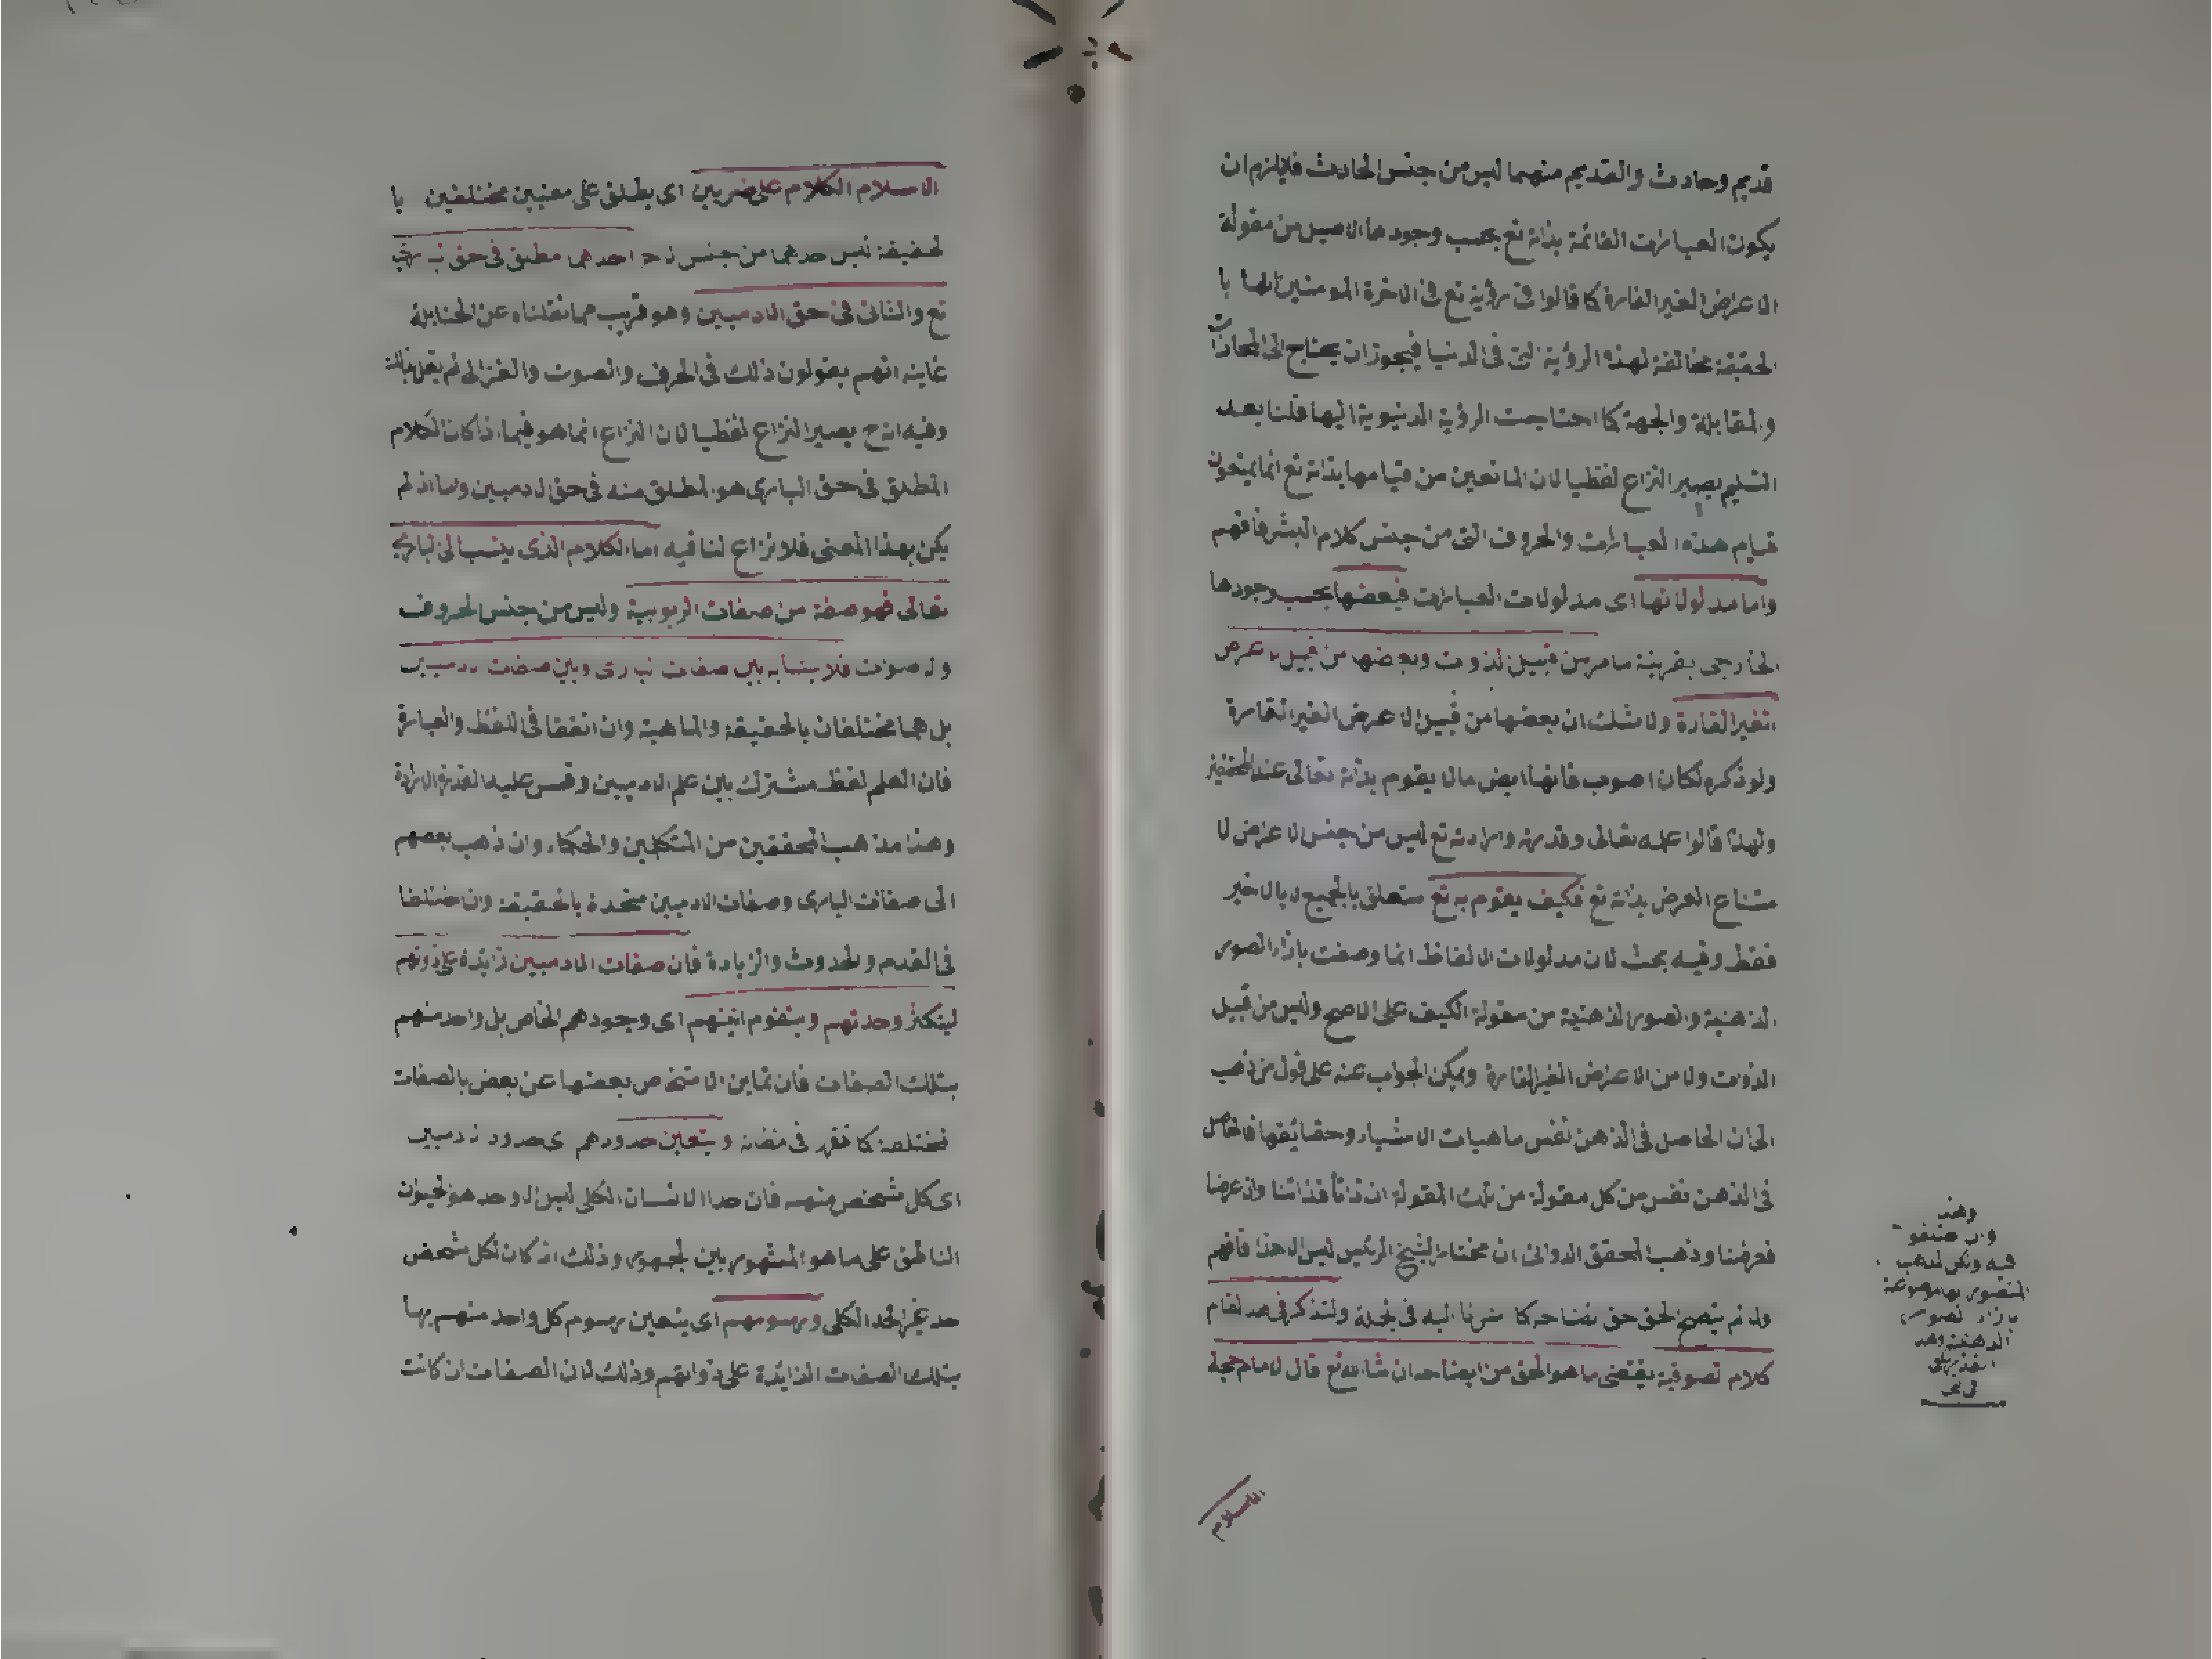 قديم وحادث والقديم منهما ليس من جنس الحادث فلا يلزم ان
يكون العبارات القائمة بذاته تع بحسب وجودها الاصيل من مقولة
الاعراض الغير القارة كما قالوا في رؤية تع في الاخرة المومنين انها با
لحقيقة مخالفة لهذه الرؤية التي في الدنيا فيجوز ان يحتاج الى المحاذات
والمقابلة والجهة كما احتاجت الرؤية الدنيوية اليها قلنا بعد
التسليم يصير النزاع لفظيا لان المانعين من قيامها بذاته تع انما يمنعون
قيام هذه العبارات والحروف التي من جنس كلام البشر فافهم
واما مدلولاتها اى مدلولات العبارات فبعضها بحسب وجودها
الخارجى بقرينة ما مر من قبيل الذوات وبعضها من قبيل الاعراض
الغير القارة ولا شك ان بعضها من قبيل الاعراض الغير القارة
ولو ذكره لكان اصوب فانها ايض مما لا يقوم بذاته تعالى عند المحققين
ولهذا قالوا علمه تعالى وقدرته وارادته تع ليس من جنس الاعراض لا
متناع العرض بذاته تع فكيف يقوم به تع متعلق بالجميع لا بالاخير
فقط وفيه بحث لان مدلولات الالفاظ انما وضعت بازاء الصور
الذهنية والصور الذهنية من مقولة الكيف على الاصح وليس من قبيل
الذوات ولا من الاعراض الغير القارة ويمكن الجواب عنه على قول من ذهب
الى ان الحاصل في الذهن نفس ماهيات الاشياء وحقائقها فالحاصل
في الذهن نفس من كل مقولة من تلك المقولة ان ذاتا فذاتنا وان عرضا
فعرضنا وذهب المحقق الدوانى ان مختار الشيخ الرئيس ليس الا هذا فافهم
ولما لم يتضح الحق حق اتضاحه كما اشرنا اليه في الجملة ولنذكر في هذا المقام
كلام الصوفية يقتضى ما هو الحق من ايضاحه ان شاالله تع قال الامام حجة
وهذا
وان اختلفوا
فيه ولكن المذهب
المنصور انها موضوعة
بازاء الصور
الذهنية وهذا
السلام
الاسلام الكلام على ضربين اى يطلق على معنيين مختلفين با
لحقيقة ليس احدهما من جنس الاخر احدهما مطلق في حق البارى
تع والثانى في حق الادميين وهو قريب مما نقلناه عن الحنابلة
غايته انهم يقولون ذلك في الحرف والصوت والغزالى لم يقل بذلك
وفيه انه ح يصير النزاع لفظيا لان النزاع انما هو فيما اذا كان الكلام
المطلق في حق البارى هو المطلق منه في حق الادميين واما اذ لم
يكن بهذا المعنى فلا نزاع لنا فيه اما الكلام الذى ينسب الى البارى
تعالى فهو صفة من صفات الربوبية وليس من جنس الحروف
والاصوات فلا يتشابه بين صفات البارى وبين صفات الادميين
بل هما مختلفان بالحقيقة والماهية وان اتفقا في اللفظ والعبارة
فان العلم لفظ مشترك بين علم الادميين وقس عليه القدرة الارادة
وهذا مذهب المحققين من المتكلمين والحكماء وان ذهب بعضهم
الى صفات البارى وصفات الادميين متحدة بالحقيقة وان اختلفا
في القدم والحدوث والزيادة فان صفات الادميين زايدة على ذوتهم
ليتكثر وحدتهم ويتقوم انيتهم اى وجودهم الخاص بل واحد منهم
بتلك الصفات فان تماين الاشخاص بعضها عن بعض بالصفات
المختلفة كما تقرر في مضانه ويتعين حدودهم اى حدود الادميين
اى كل شخص منهم فان حدا الانسان الكلى ليس الا وحد هو الحيوان
الناطق على ما هو المشهور بين الجمهور وذلك اذ كان لكل شخص
حد غير الحد الكلى ورسومهم اى يتعين رسوم كل واحد منهم بها
بتلك الصفات الزايدة على ذواتهم وذلك لان الصفات ان كانت